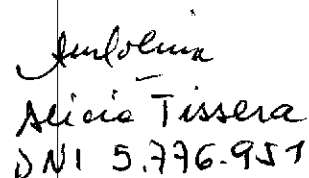 Alicia Tissera
DNI 5.776.951